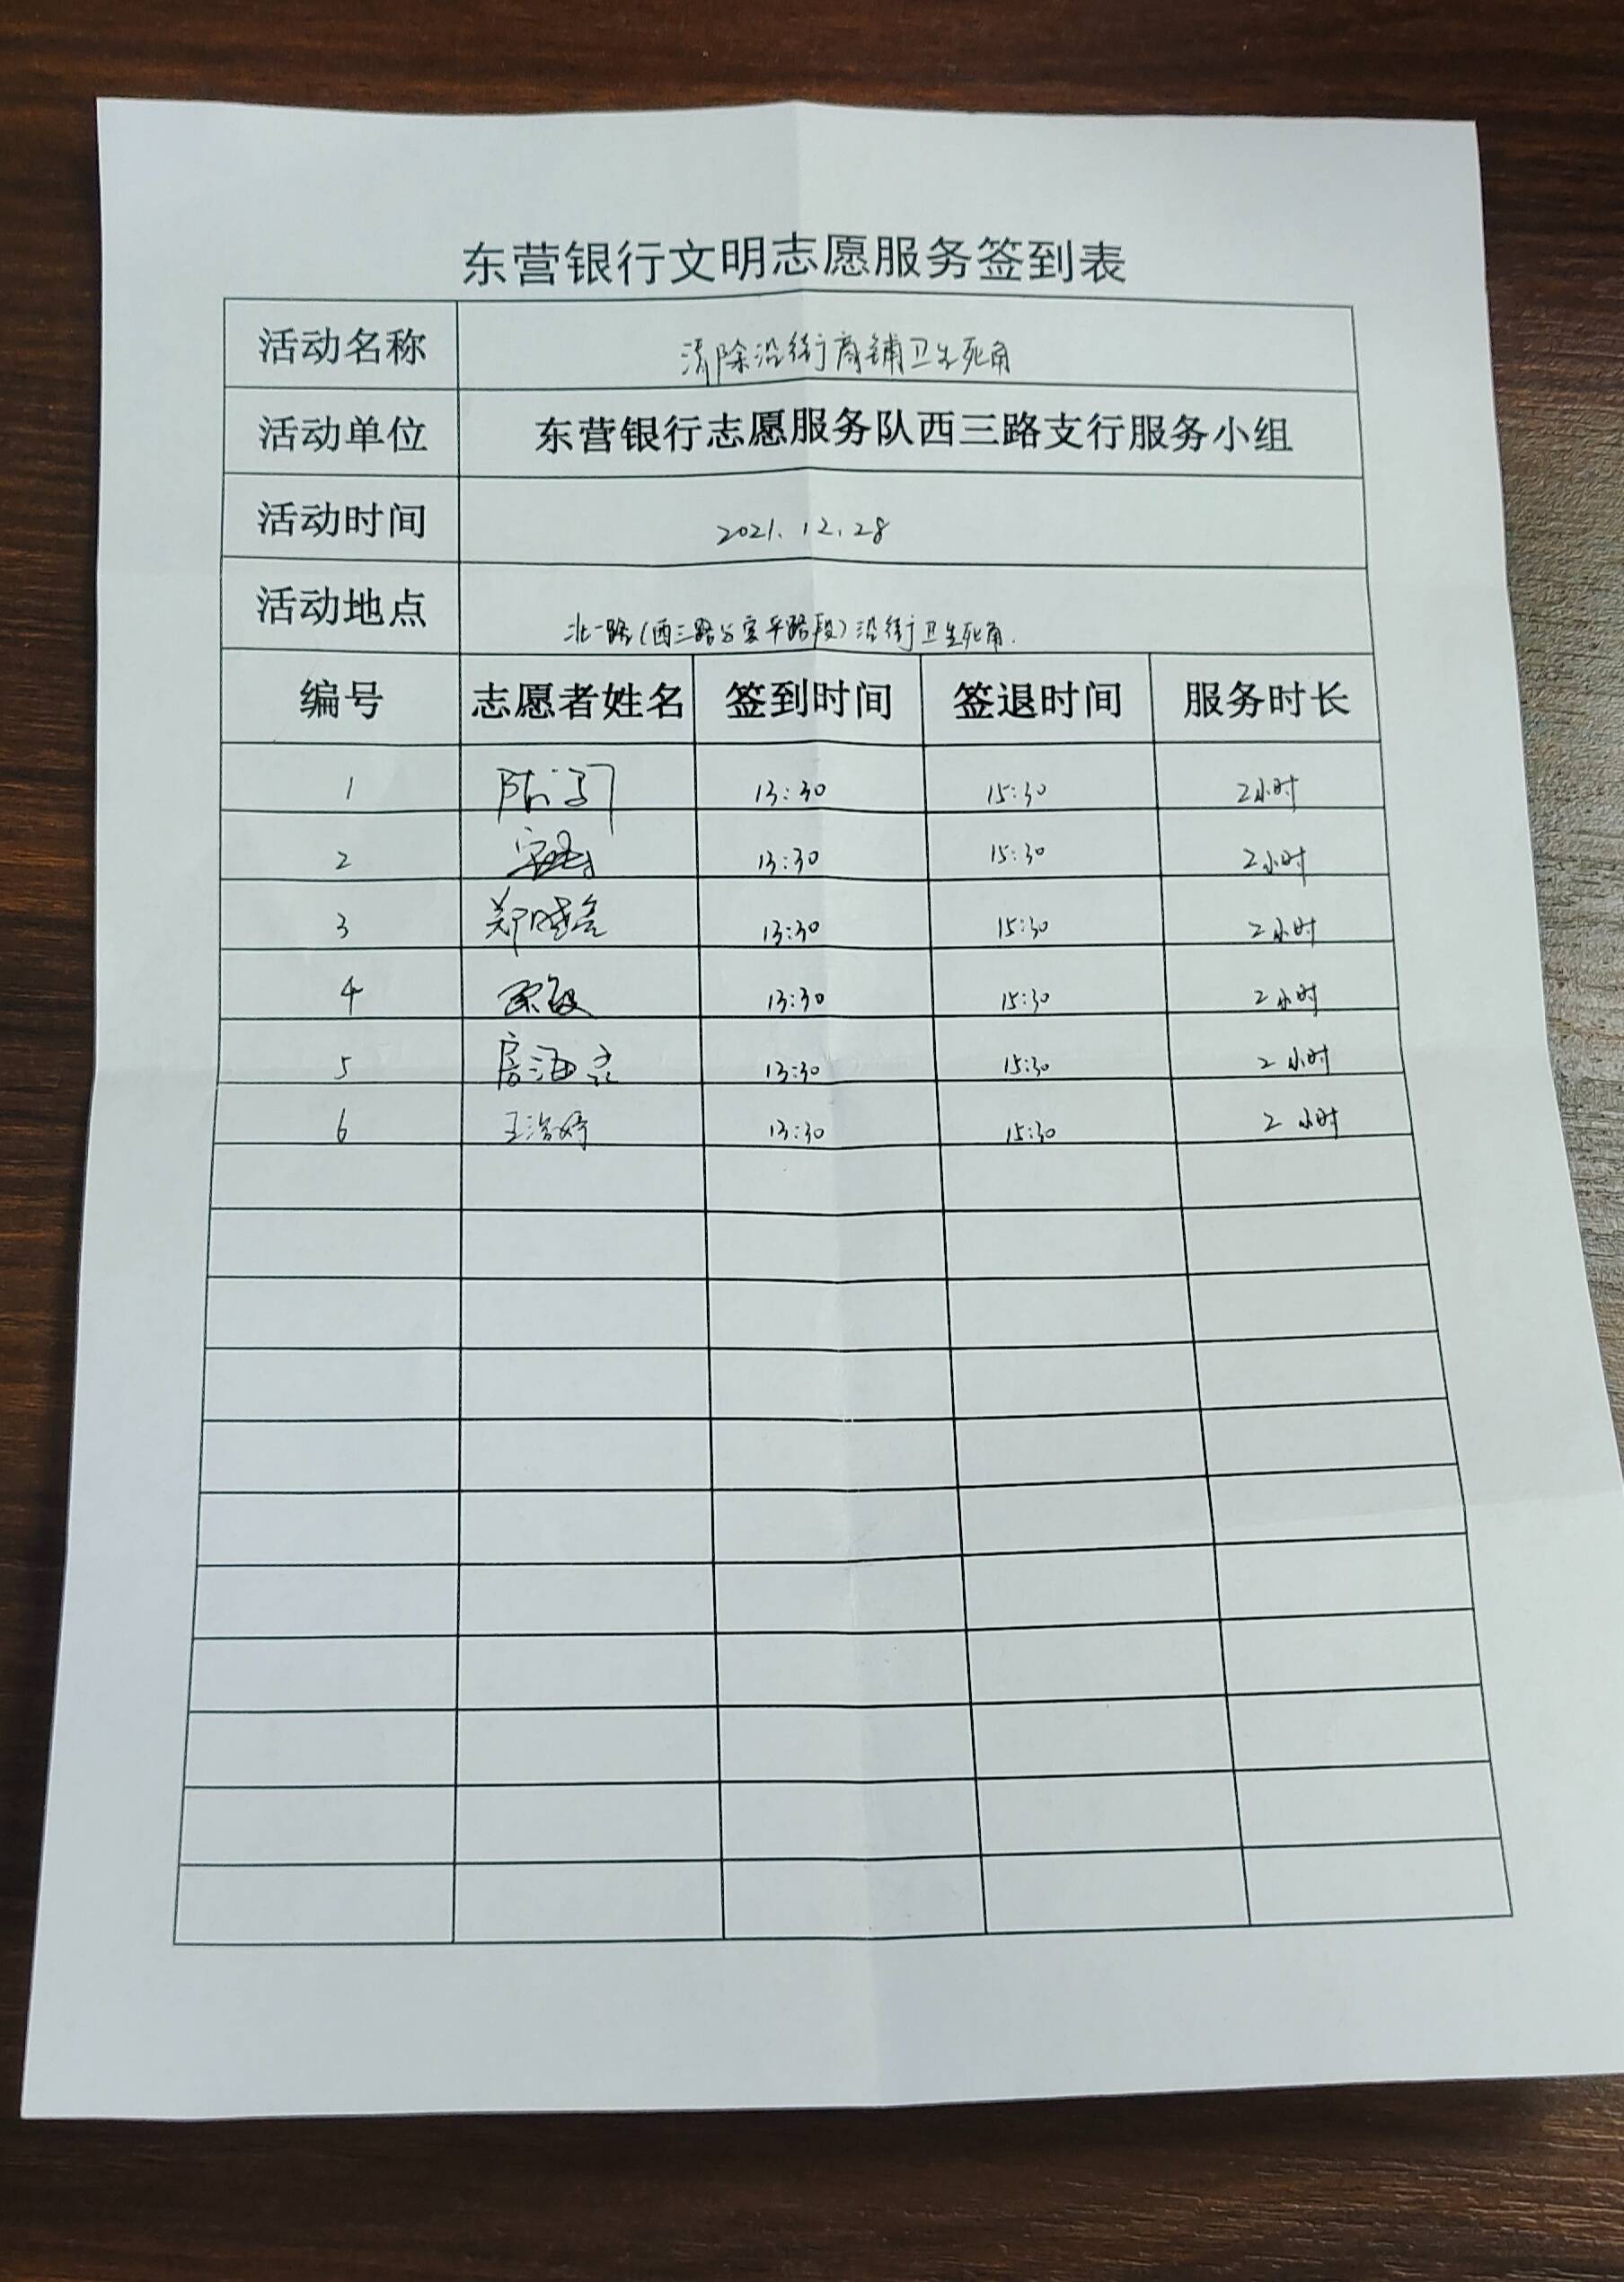 东营银行文明志愿服务签到表
活动名称 清除沿街商铺卫生死角
活动单位 东营银行志愿服务队西三路支行服务小组
活动时间 2021.12.28
活动地点 北一路(西三路与富平路段)沿街卫生死角.
编号 志愿者姓名 签到时间 签退时间 服务时长
1 13:30 15:30 2小时
2 13:30 15:30 2小时
3 13:30 15:30 2小时
4 13:30 15:30 2小时
5 13:30 15:30 2小时
6 13:30 15:30 2小时